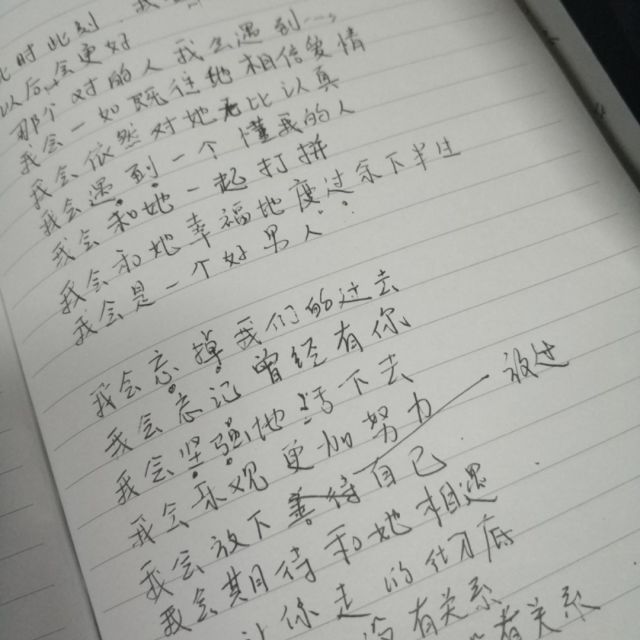 此时此刻 我
以后会更好
那个对的人 我会遇到
我会一如既往地相信爱情
我会依然对她无比认真
我会遇到一个懂我的人
我会和她一起打拼
我会和她幸福地度过余下半生
我会是一个好男人
我会忘掉我们的过去
我会忘记曾经有你
我会坚强地活下去
我会乐观 更加努力
我会放下 善待自己 放过
我会期待和她相遇
让你走的彻底
没有关系
有关系